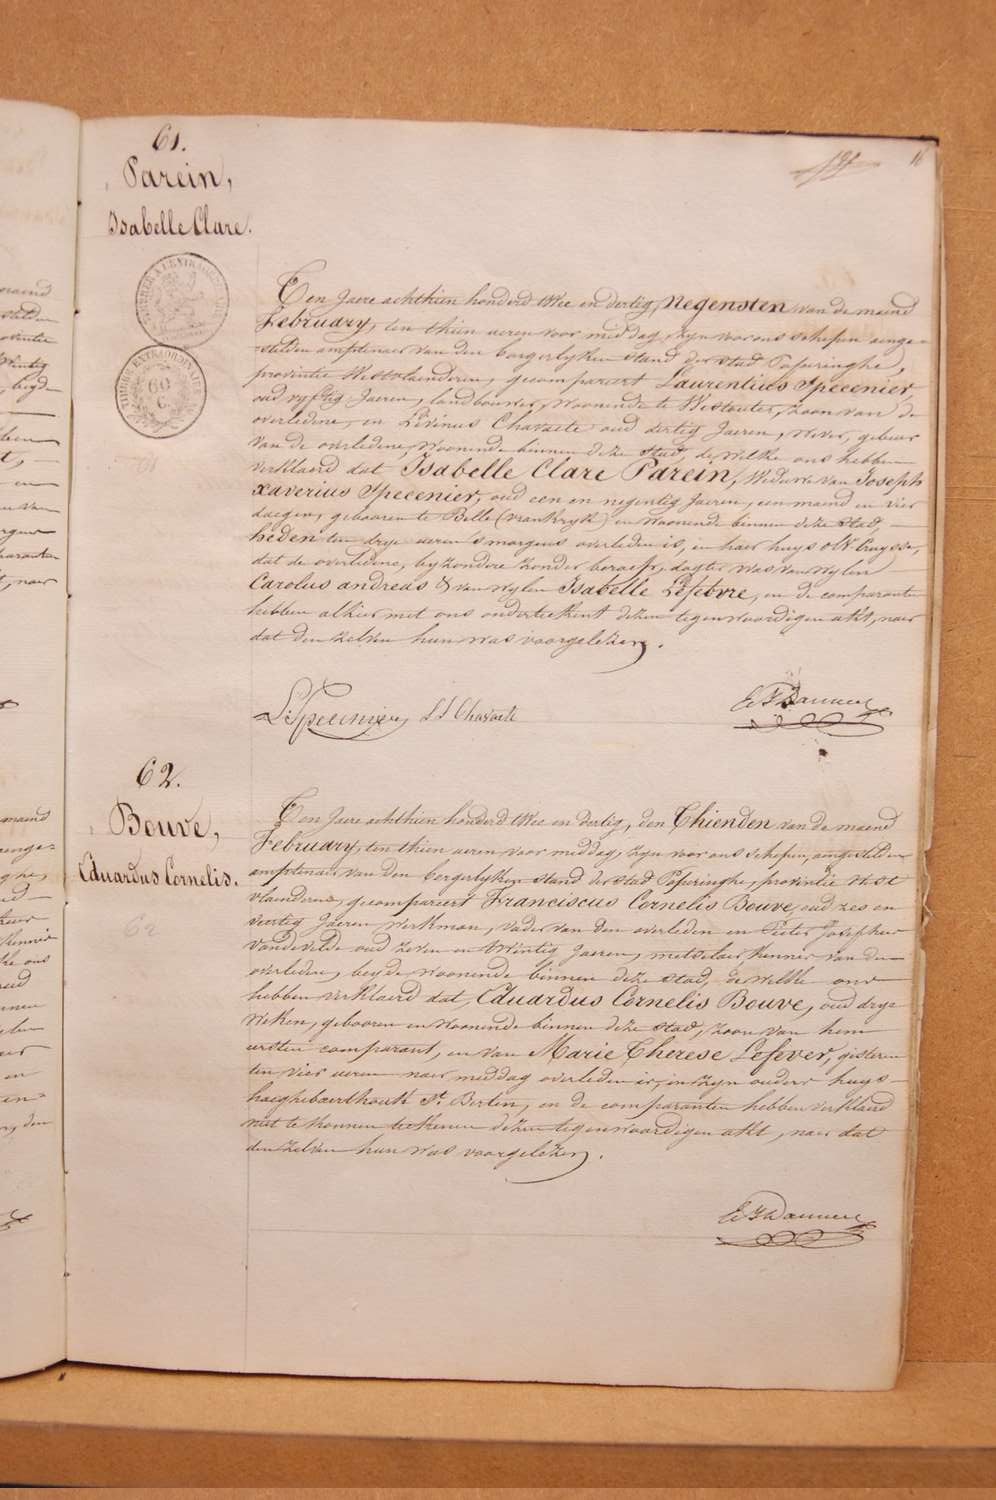 61.
Parein,
Isabelle Clare.
TIMBRE EXTRAORDINAIRE
60
C
Ten Jaere achthien honderd twee en dertig, negensten van de maend
February, ten thien ueren voor middag, zyn voor ons schepen aenge=
=stelden amptenaer van den borgerlyken stand der stad Poperinghe,
provintie Westvlaenderen, gecompareert Laurentius Specenier,
oud vyftig Jaeren, landbouwer, woonende te Westouter, zoon van de
overledene, en Livinus Chavaete oud dertig Jaeren, wever, gebuer
van de overledene, woonende binnen deze stad, de welke ons hebben
verklaerd dat Isabelle Clare Parein, weduwe van Joseph
xaverius Specenier, oud een en negentig Jaeren, een maend en vier
daegen, gebooren te Belle (vrankryk) en woonende binnen deze stad, —
heden ten drye ueren smorgens overleden is, in haer huys
dat de overledene, byzondere zonder beroep, dogter was van wylen
Carolus andreas & van wylen Isabelle Lefebvre, en de comparanten
hebben alhier met ons onderteekent dezen tegenwoordigen akt, naer
dat den zelven hun was voorgelezen.
L. Specenier L J Chavaete
62.
Bouve,
Eduardus Cornelis.
62
Ten Jaere achthien honderd twee en dertig, den Thienden van de maend
February, ten thien ueren voor middag, zyn voor ons schepen, aengestelden
amptenaer van den borgerlyken stand der stad Poperinghe, provintie West
vlaenderen, gecompareert Franciscus Cornelis Bouve, oud zes en
veertig Jaeren werkman, vader van den overleden en Pieter Josephus
vandevelde oud zeven en twintig Jaeren, metselaer, kenner van den
overleden, beyde woonende binnen deze stad, de welke ons
hebben verklaerd dat, Eduardus Cornelis Bouve, oud drye
weken, gebooren en woonende binnen deze stad, zoon van hem
eersten comparant, en van Marie Therese Lefever, gisteren
ten vier ueren naer middag overleden is, in zyn ouders huys —
haeghebaerthoek St. Berten, en de comparanten hebben verklaerd
niet te konnen teekenen dezen tegenwoordigen akt, naer dat
den zelven hun was voorgelezen.